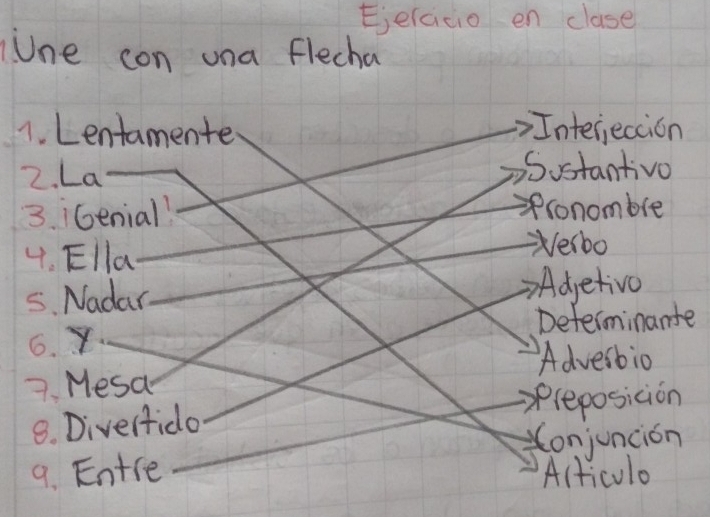 Ejercicio en clase
Une con una flecha
1. Lentamente
2. La
3. ¡Genial!
4. Ella
5. Nadar
6. Y
7. Mesa
8. Divertido
9. Entre
Interjección
Sustantivo
Pronombre
Verbo
Adjetivo
Determinante
Adverbio
Preposición
Conjunción
Artículo